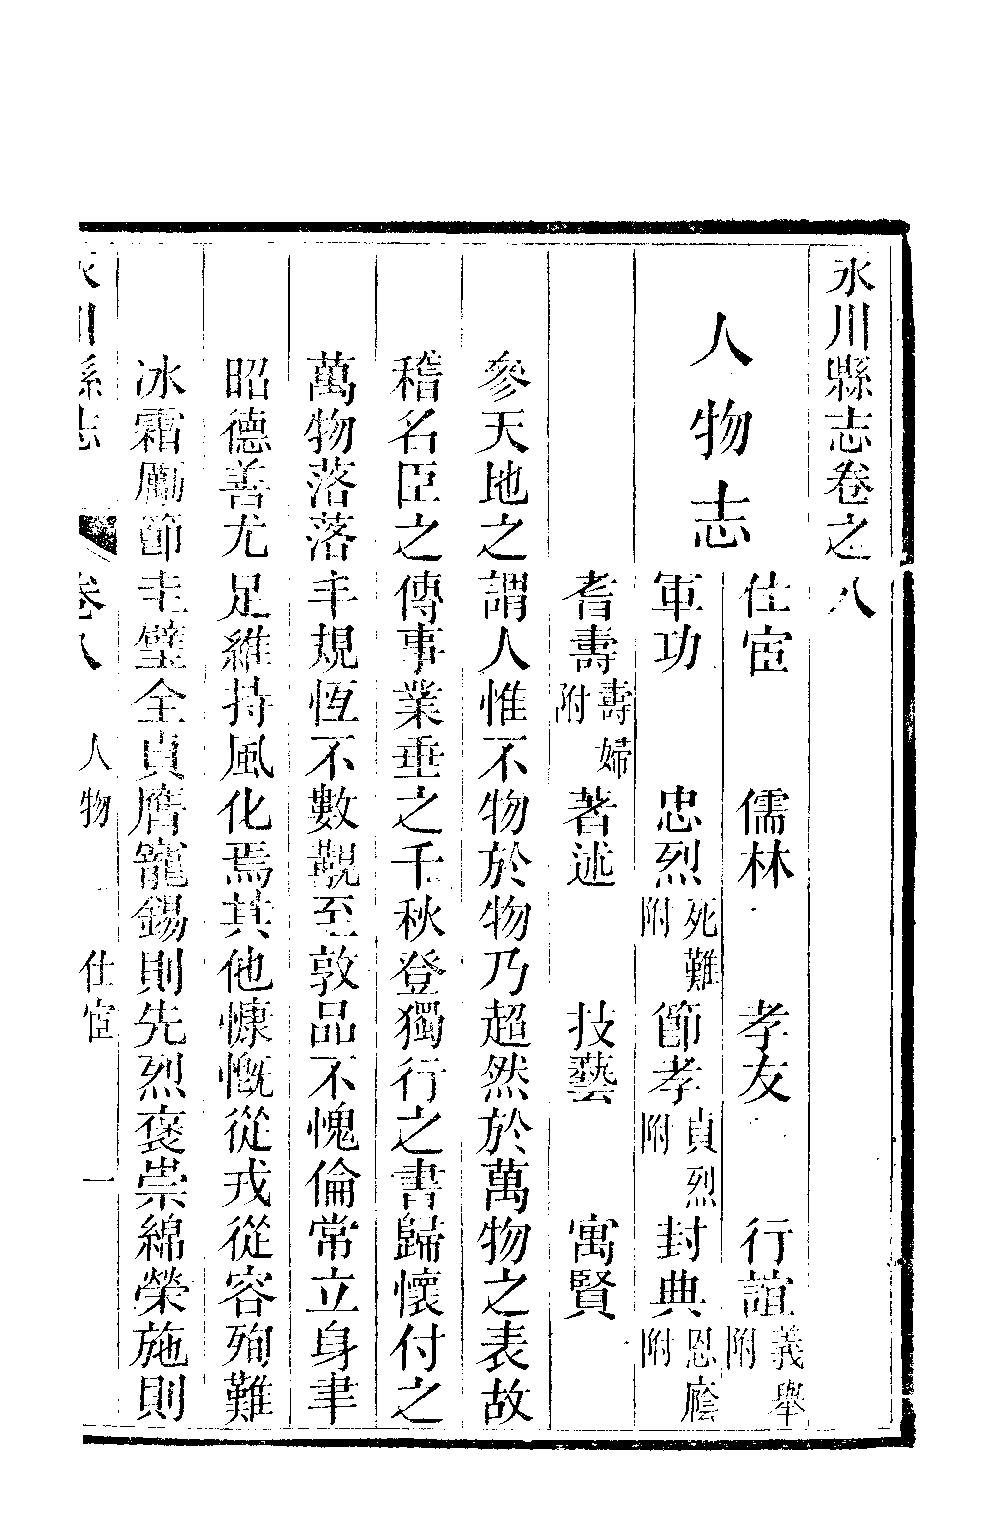 永川縣志卷之八
人物志
仕宦　儒林　孝友　行誼義舉附
軍功　忠烈死難附　節孝貞烈附　封典恩廕附
耆壽壽婦附　著述　技藝　寓賢
參天地之謂人惟不物於物乃超然於萬物之表故
稽名臣之傳事業垂之千秋登獨行之書歸懷付之
萬物落落丰規恆不數覯至敦品不愧倫常立身聿
昭德善尤足維持風化焉其他慷慨從戎從容殉難
冰霜勵節圭璧全貞膺寵錫則先烈褒崇綿榮施則
永川縣志　卷八　人物　仕宦　一